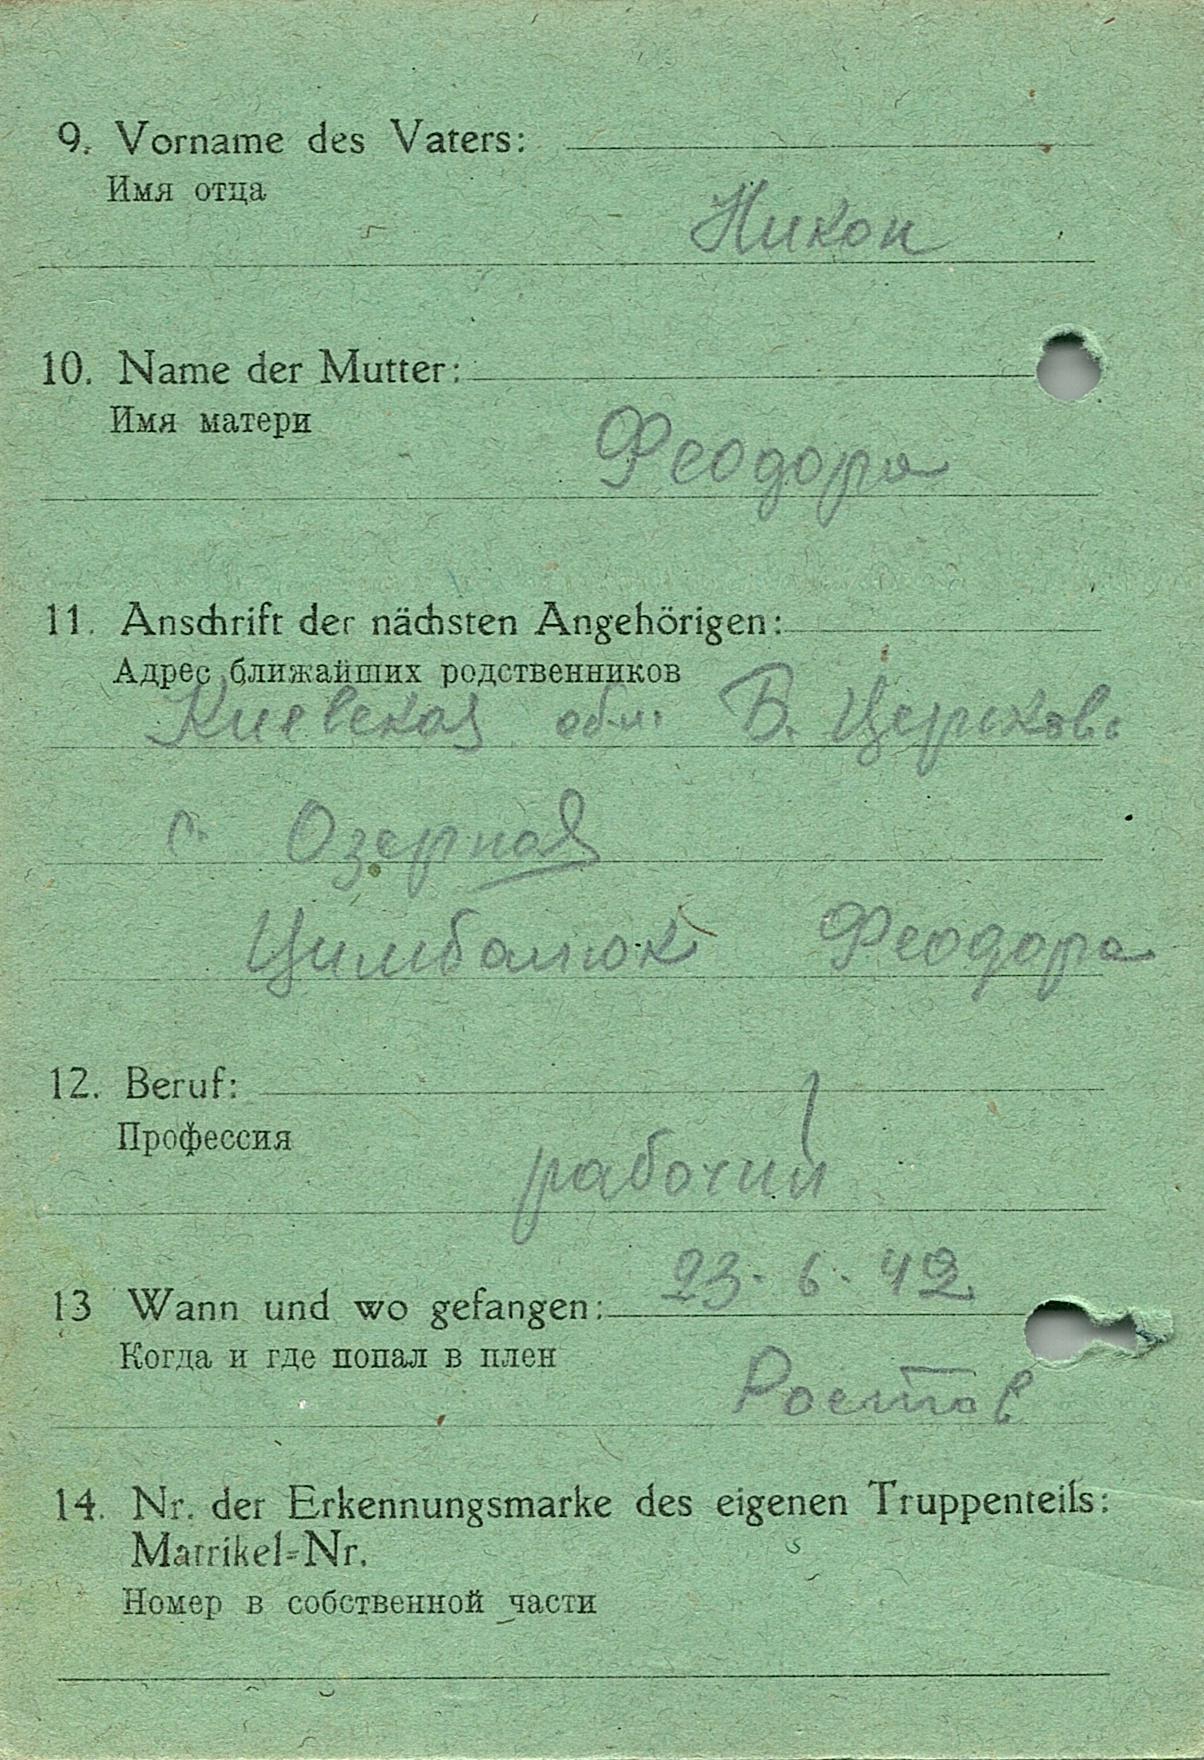 9. Vorname des Vaters:
Имя отца
Никон
10. Name der Mutter:
Имя матери
Феодора
11. Anschrift der nächsten Angehörigen:
Адрес ближайших родственников
Киевская обл. Б. Церковь
с. Озерная
Цимбалюк Феодора
12. Beruf:
Профессия
рабочий
23. 6. 42
13 Wann und wo gefangen:
Когда и где попал в плен
Ростов
14. Nr. der Erkennungsmarke des eigenen Truppenteils:
Matrikel-Nr.
Номер в собственной части